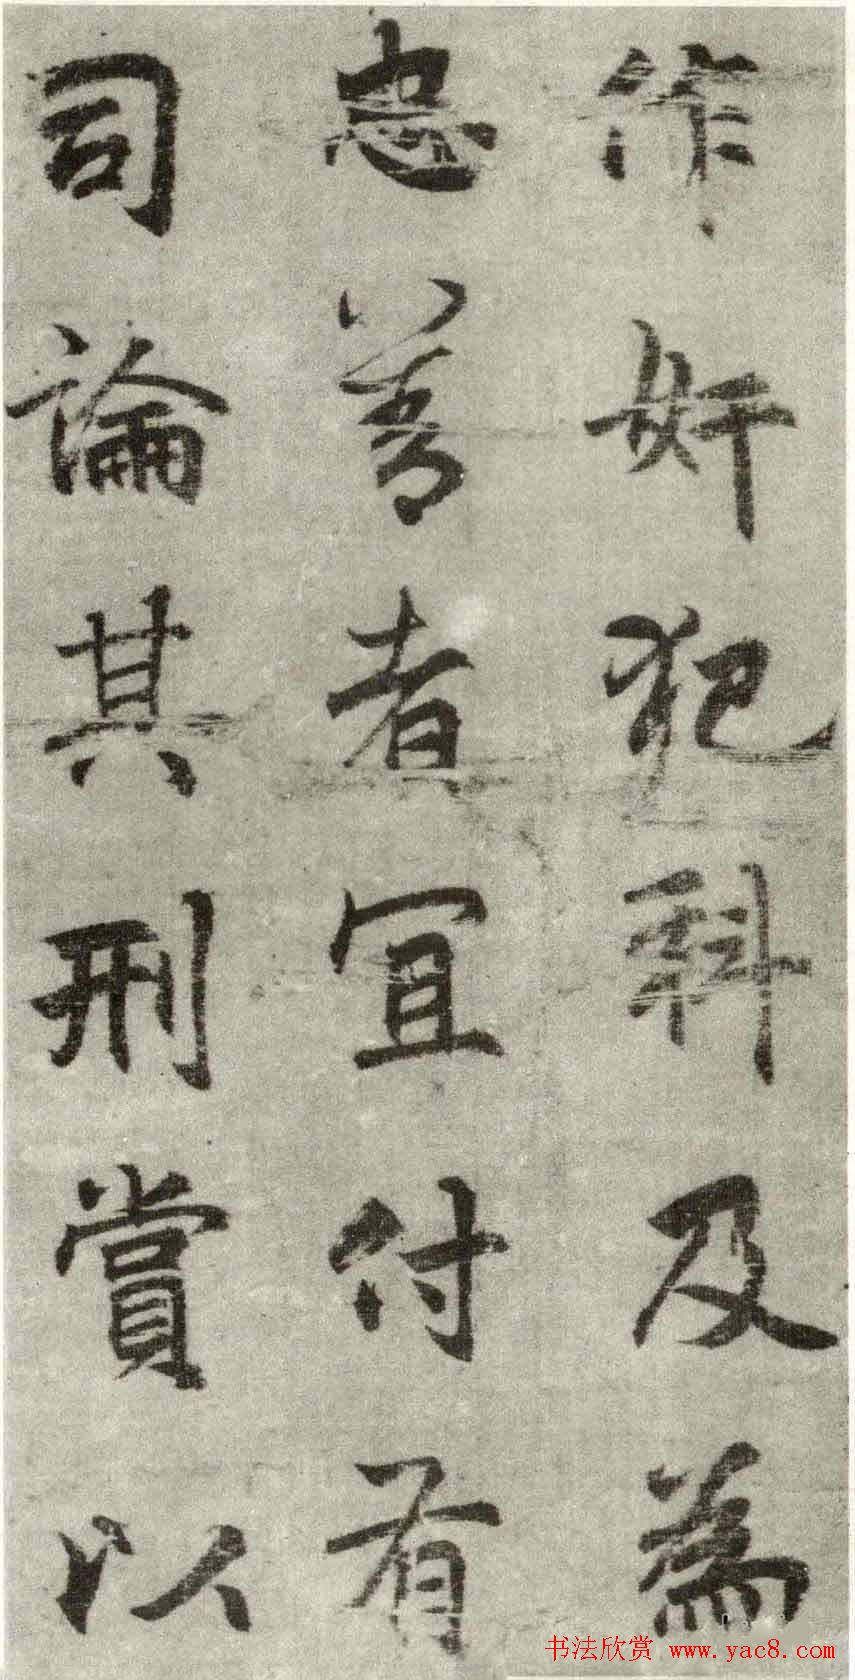 作奸犯科及為
忠善者宜付有
司論其刑賞以
书法欣赏 www.yac8.com